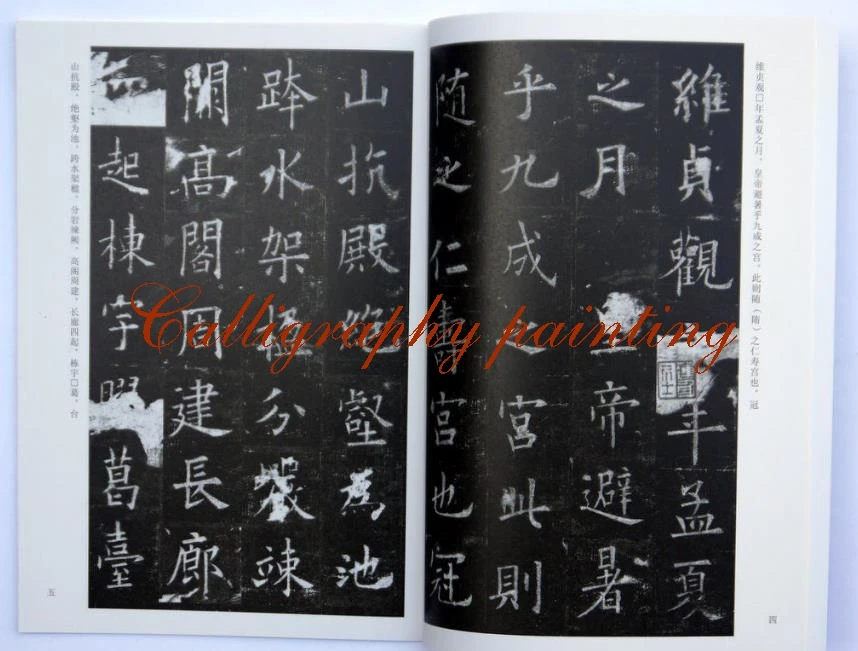 维贞观□年孟夏之月，皇帝避暑乎九成之宫，此则随（隋）之仁寿宫也，冠
維貞觀年孟夏
之月皇帝避暑
乎九成之宮此則
随之仁壽宮也冠
四
山抗殿絶壑為池
跨水架楹分巖竦
闕高閣周建長廊
起棟宇葛臺
山抗殿，绝壑为池，跨水架楹，分岩竦阙，高阁周建，长廊四起，栋宇□葛，台
五
Calligraphy painting